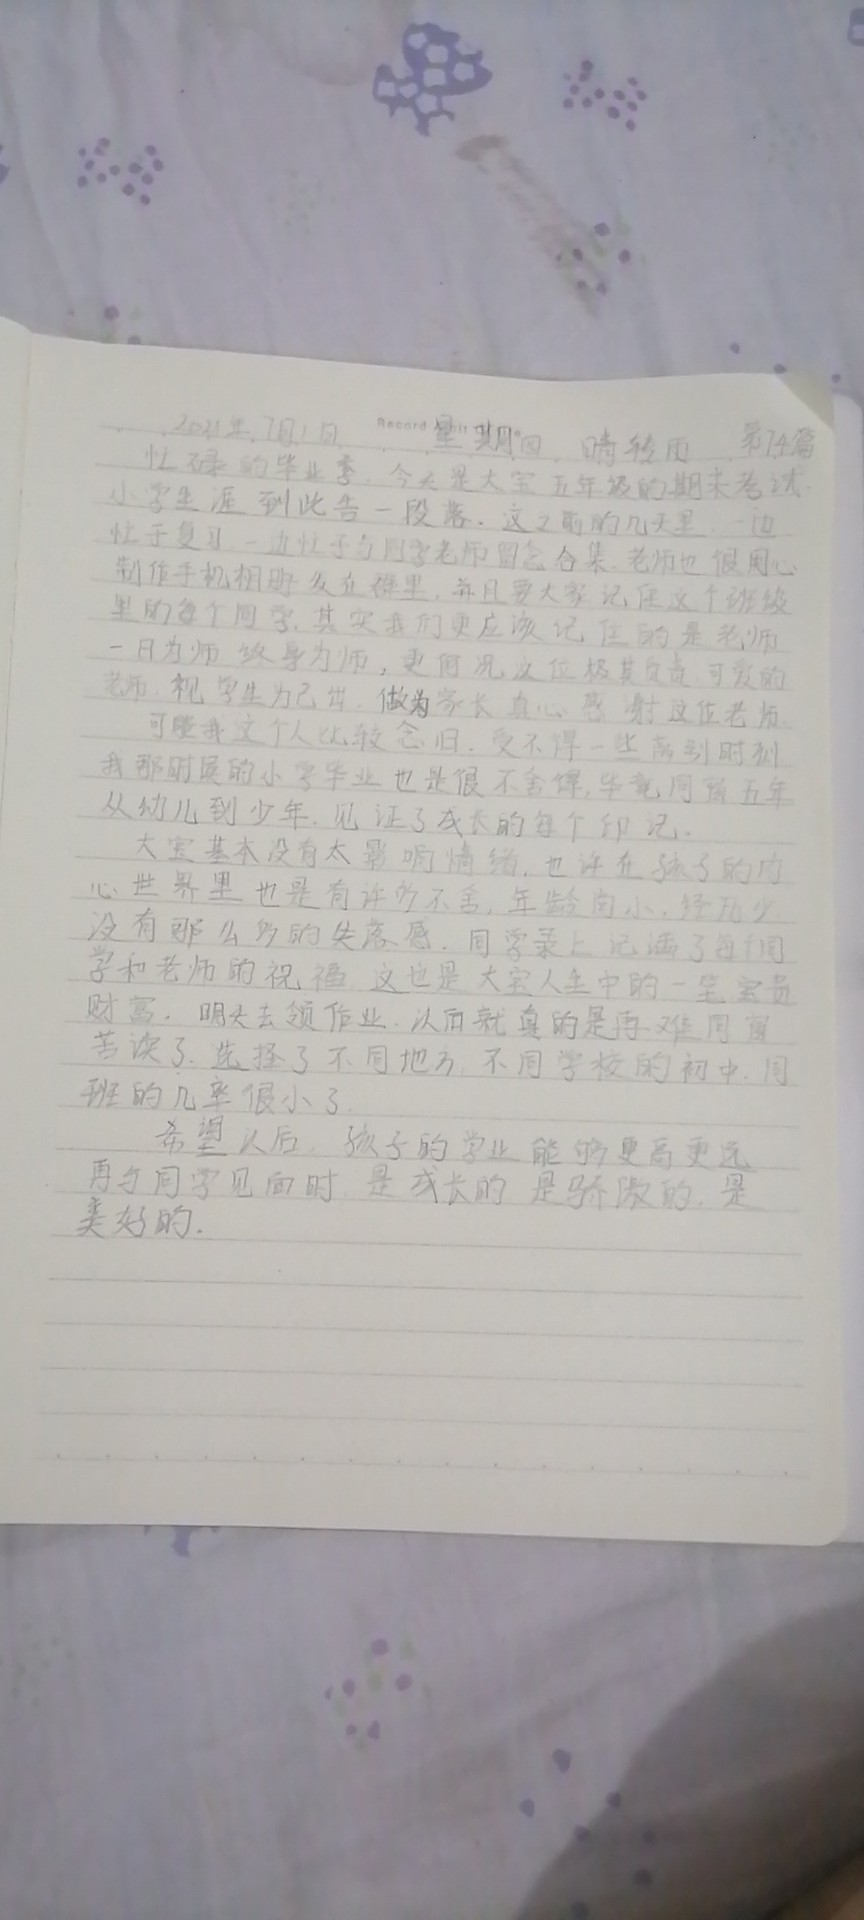 2021年7月1日 Record 星期四 晴转雨 第74篇
忙碌的毕业季，今天是大宝五年级的期末考试.
小学生涯到此告一段落. 这之前的几天里, 一边
忙于复习 一边忙于与同学老师留念合集. 老师也很用心
制作手机相册 发在群里, 并且要大家记住这个班级
里的每个同学, 其实我们更应该记住的是老师
一日为师 终身为师, 更何况这位极其负责 可爱的
老师. 视学生为己出. 做为家长 真心感谢这位老师.
可能我这个人比较念旧. 受不得一些离别时刻
我那时候的小学毕业也是很不舍得, 毕竟同窗五年
从幼儿到少年. 见证了成长的每个印记.
大宝基本没有太影响情绪, 也许在孩子的内
心世界里也是有许多不舍, 年龄尚小, 经历少
没有那么多的失落感. 同学录上记满了每个同
学和老师的祝福 这也是大宝人生中的一笔宝贵
财富. 明天去领作业. 以后就真的是再难同窗
苦读了. 选择了不同地方, 不同学校的初中. 同
班的几率很小了.
希望以后. 孩子的学业能够更高更远
再与同学见面时. 是成长的 是骄傲的. 是
美好的.